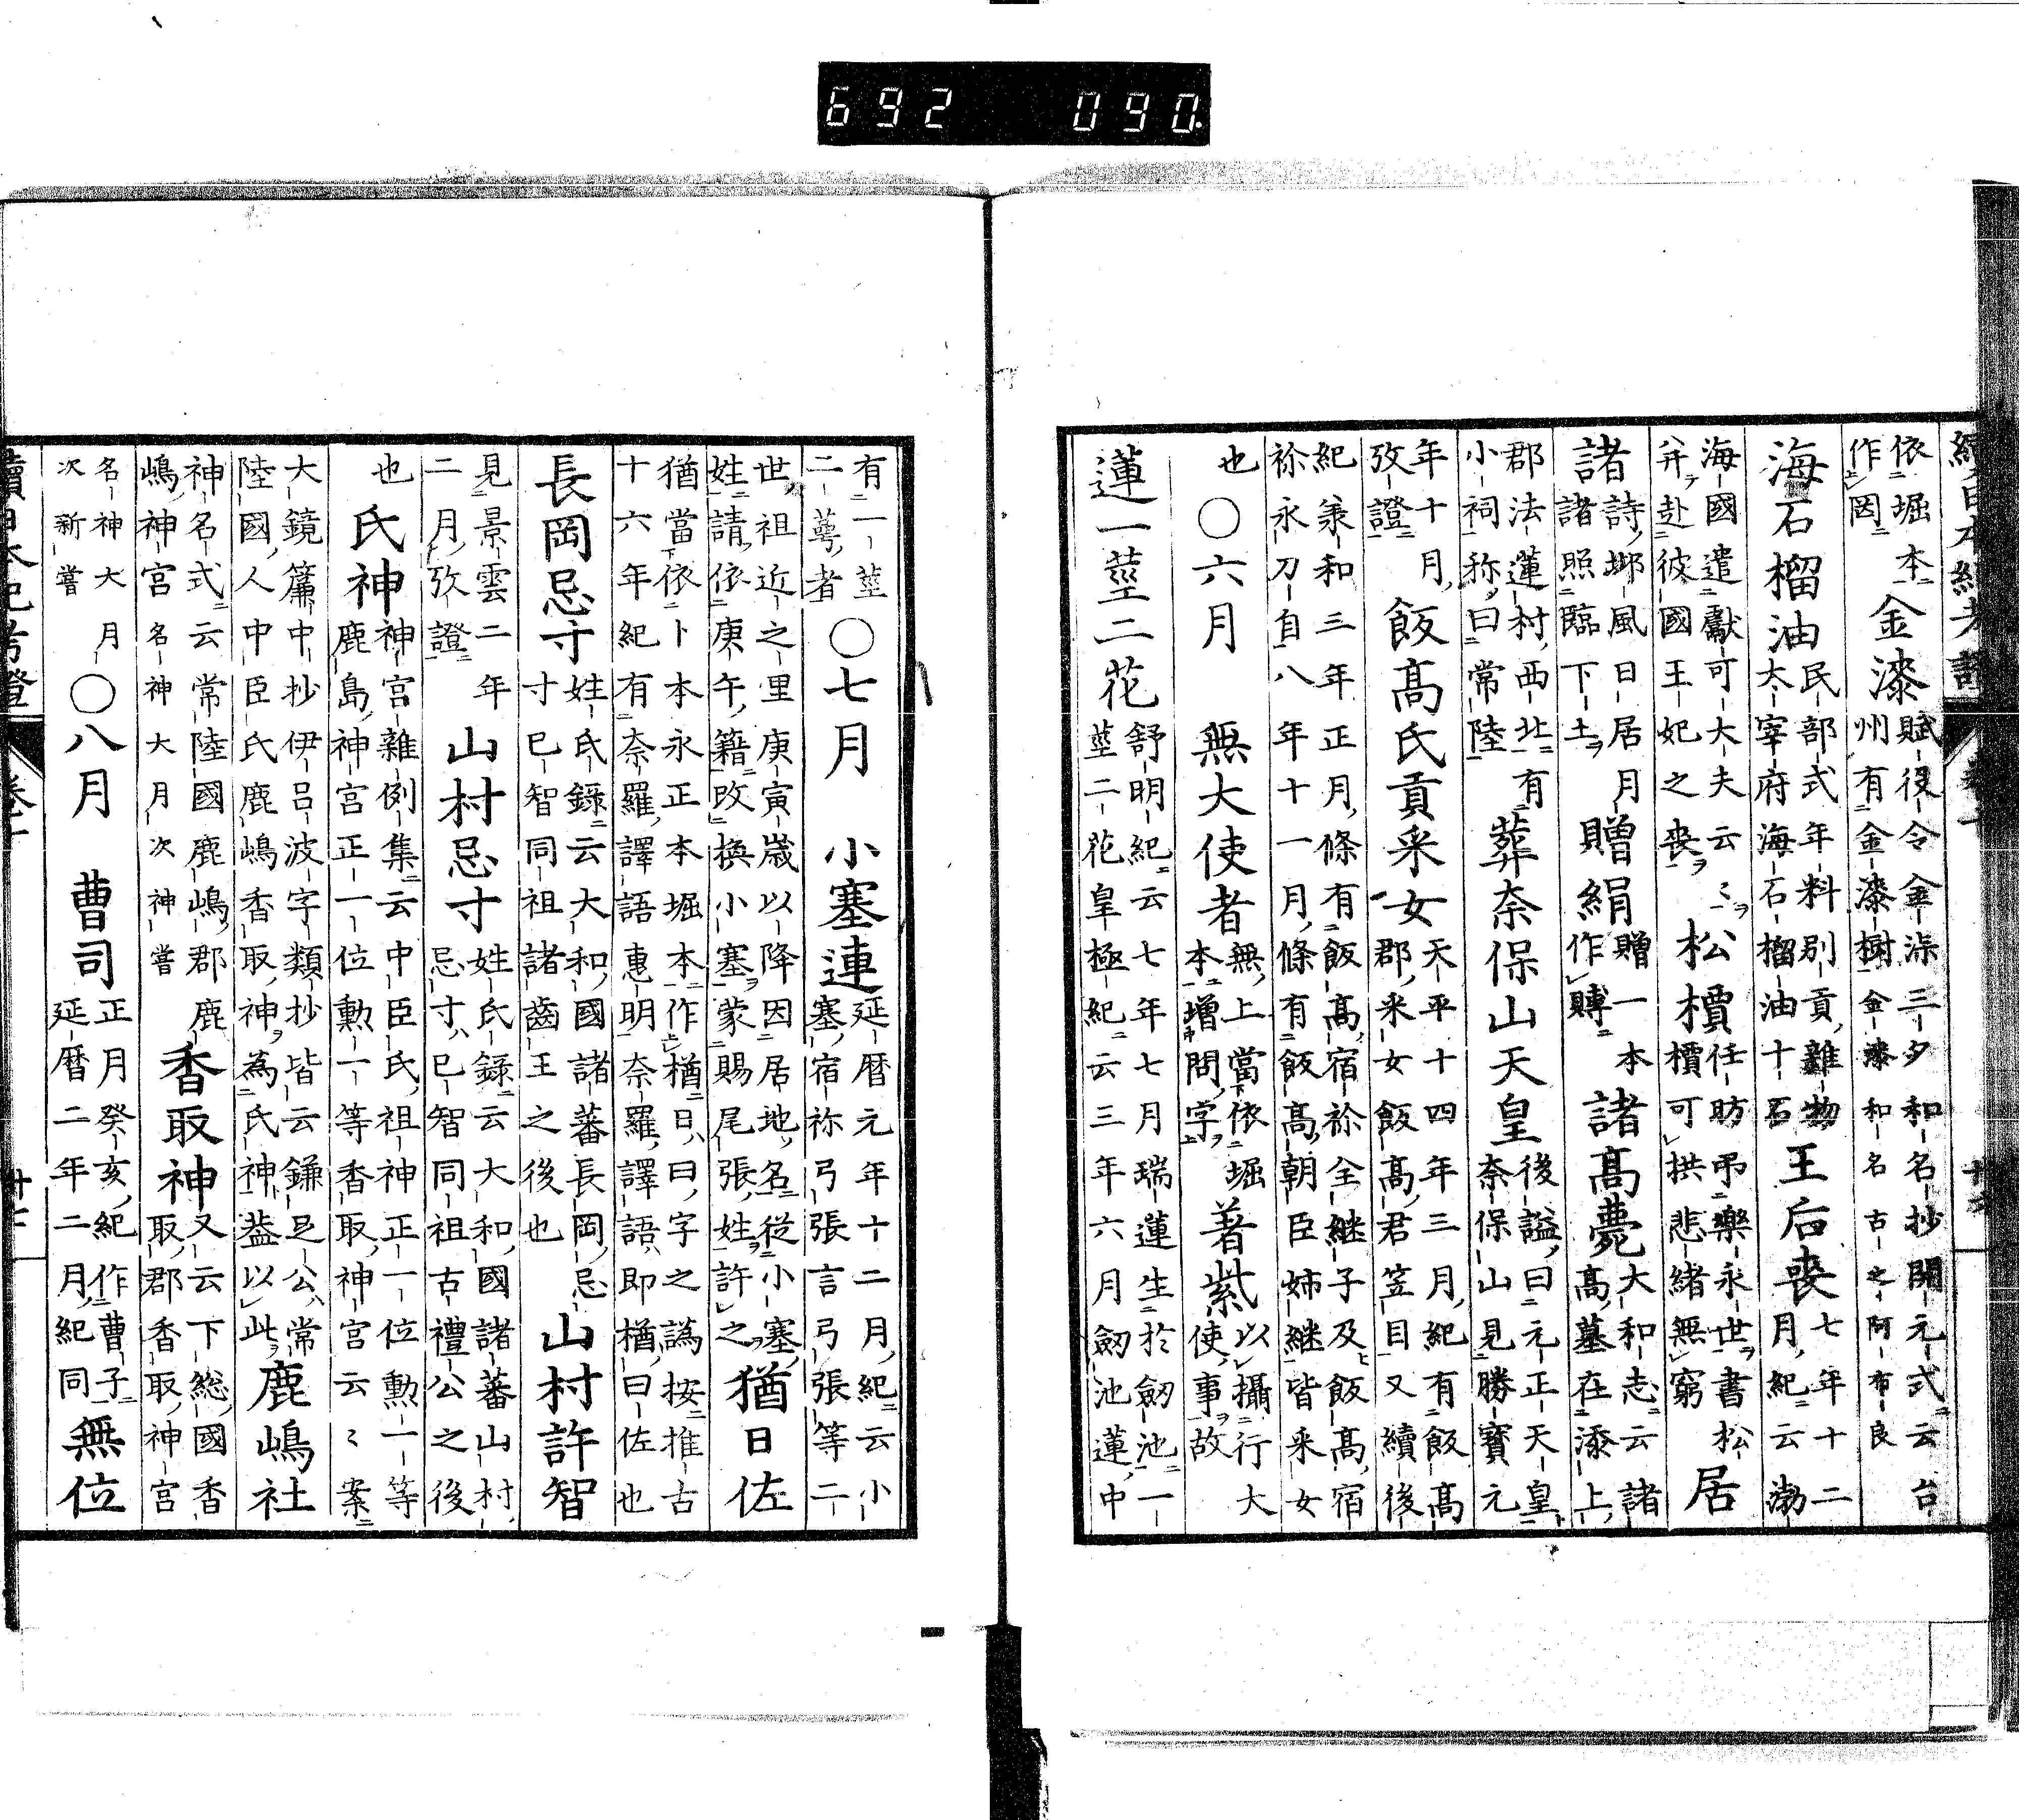 692 090
依堀本金漆賦役令金漆三夕和名抄開元式云台
作因州有金漆樹金漆和名古之阿布良
海石榴油民部式年料別貢雜物王后喪七年十二
太宰府海石榴油十石月紀云渤
海國遣獻可大夫云〻松櫝任昉弔樂永世書松居
并赴彼國王妃之喪櫝可拱悲緒無窮
諸詩邶風日居月贈絹贈一本諸髙薨大和志云諸
諸照臨下土作賻髙墓在添上
郡法蓮村西北有葬奈保山天皇後謚曰元正天皇
小祠称曰常陸奈保山見勝寶元
年十月飯髙氏貢采女天平十四年三月紀有飯髙
攷證郡采女飯髙君笠目又續後
紀兼和三年正月條有飯髙宿祢全継子及飯髙宿
祢永刀自八年十一月條有飯髙朝臣姉継皆采女
也〇六月無大使者無上當依堀著紫以攝行大
本增問字使事故
蓮一莖二花舒明紀云七年七月瑞蓮生於劒池一
莖二花皇極紀云三年六月劒池蓮中
有一莖〇七月小塞連延暦元年十二月紀云小
二萼者塞宿祢弓張言弓張等二
世祖近之里庚寅歳以降因居地名從小塞猶日佐
姓請依庚午籍改換小塞蒙賜尾張姓許之
猶當依卜本永正本堀本作楢日曰字之譌按推古
十六年紀有奈羅譯語惠明奈羅譯語即楢曰佐也
長岡忌寸姓氏録云大和國諸蕃長岡忌山村許智
寸巳智同祖諸齒王之後也
見景雲二年山村忌寸姓氏録云大和國諸蕃山村
二月攷證忌寸巳智同祖古禮公之後
也氏神神宮雜例集云中臣氏祖神正一位勳一等
鹿島神宮正一位勲一等香取神宮云〻案
大鏡簾中抄伊呂波字類抄皆云鎌足公常鹿嶋社
陸國人中臣氏鹿嶋香取神為氏神葢以此
神名式云常陸國鹿嶋郡鹿香取神又云下総國香
嶋神宮名神大月次神嘗取郡香取神宮
名神大月〇八月曹司正月癸亥紀作曹子無位
次新嘗延暦二年二月紀同
續日本紀考證